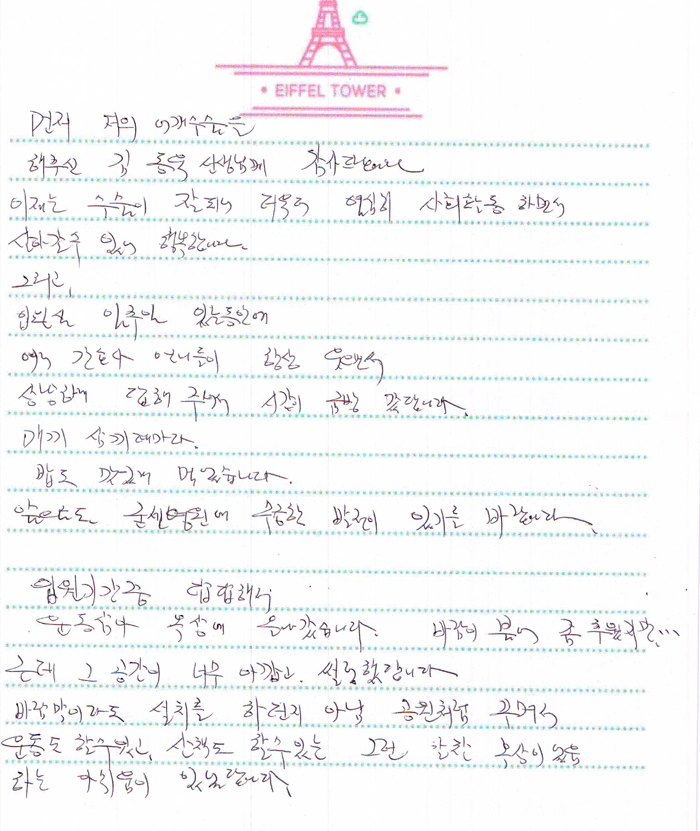 EIFFEL TOWER
먼저 저의 어깨수술을
해주신 김 동욱 선생님께 감사드립니다
이제는 수술이 잘되어 더욱더 열심히 사회활동 하면서
살아갈수 있어 행복합니다.
그리고,
입원실 일주일 있는동안에
여러 간호사 언니들이 항상 웃면서
상냥하게 대해 주셔서 시간이 금방 갔답니다.
매끼 삼끼때마다.
밥도 맛있게 먹었습니다.
앞으로도 굳센병원에 무궁한 발전이 있기를 바랍니다.
입원기간중 답답해서
운동삼아 옥상에 올라갔습니다. 바람이 불어 좀 추웠지만...
근데 그 공간이 너무 아깝고, 썰렁했답니다
바람막이라도 설치를 하던지 아님 공원처럼 꾸며서
운동도 할수있고, 산책도 할수있는 그런 알찬 옥상이 었음
하는 아쉬움이 있었답니다.